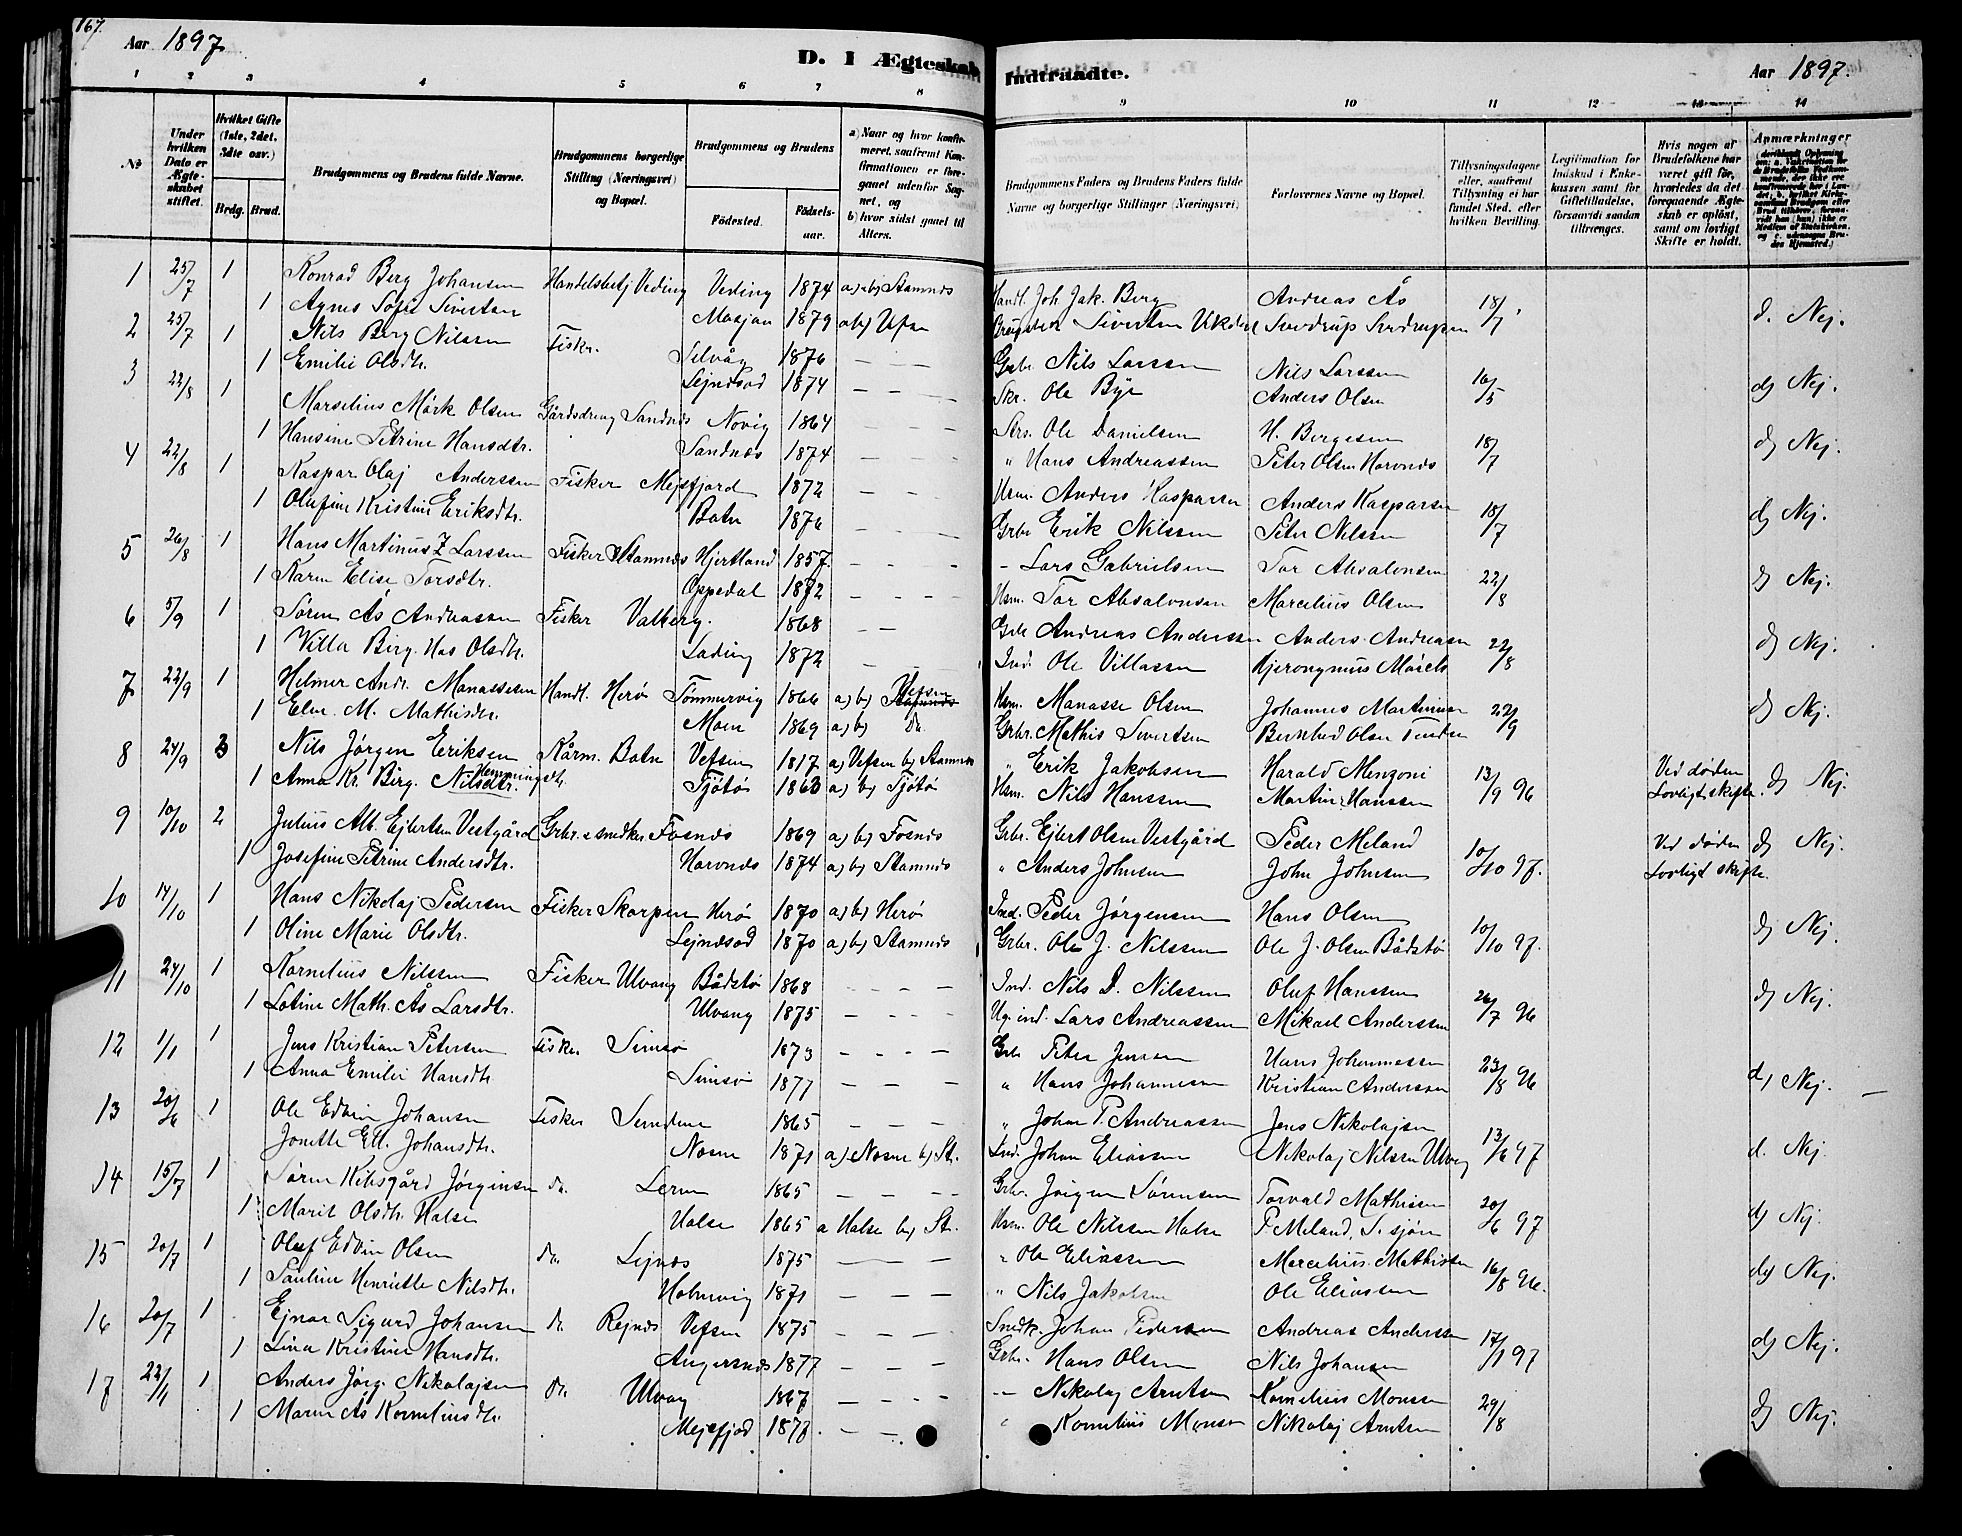 167.
Aar 1897
D. I Ægteskab Indtraadte.
Aar 1897.
1 2 3 4 5 6 7 8 9 10 11 12 13 14
№
Under hvilken Dato er Ægteskabet stiftet.
Hvilket Gifte (1ste, 2det, 3die osv.)
Brdg. Brud.
Brudgommens og Brudens fulde Navne.
Brudgommens borgerlige Stilling (Næringsvei) og Bopæl.
Brudgommens og Brudens
Fødested. Fødsels-aar.
a) Naar og hvor konfirmeret, saafremt Konfirmationen er foregaaet udenfor Sognet, og
b) hvor sidst gaaet til Alters.
Brudgommens Faders og Brudens Faders fulde Navne og borgerlige Stillinger (Næringsvei).
Forlovernes Navne og Bopæl.
Tillysningsdagene eller, saafremt Tillysning ei har fundet Sted, efter hvilken Bevilling.
Legitimation for Indskud i Enkekassen samt for Giftetilladelse, forsaavidt saadan tiltrænges.
Hvis nogen af Brudefolkene har været gift før, hvorledes da det foregaaende Ægteskab er opløst, samt om lovligt Skifte er holdt.
Anmærkninger
1 25/7 1 Konrad Berg Johansen Handelsbetj Veding Veding 1874 a) & b) Stamnes Handl. Joh. Jak. Berg Andreas Ås 18/7 d. Nej.
1 Agnes Sofie Sivertsen Mosjøen 1879 a b) Vefsn Sivertsen Sverdrup Sverdrupsen
2 25/7 1 Nils Berg Nilssen Fisker. Selvåg 1876 — — Grbr. Nils Larssen Nils Larssen 16/5 d) Nej.
1 Emilie Olsdtr. Lejndsod 1874 — — Skr. Ole Bye Anders Olsen
3 22/8 1 Marselius Mörk Olsen Gårdsdreng Sandnes Novig 1864 Strs. Ole Danielsen H. Bergesen 18/7 d) Nej.
1 Hansine Petrine Hansdtr. Sandnes 1874 " Hans Andreassen Peter Olsen Havnes
4 22/8 1 Kaspar Olaj Anderssen Fisker Mejsfjord 1872 Hsm. Anders Kasparsen Anders Kasparsen 18/7 d) Nej.
1 Olufine Kristine Eriksdtr. Botn 1876 Grbr Erik Nilssen Peter Nilssen
5 26/8 1 Hans Martinus Z Larssen Fisker Stamnes Hjertland 1857. - Lars Gabrielsen Tor Absalonsen 22/8 d) Nej.
1 Karen Elise Torsdtr. Oppedal 1872 Hsm. Tor Absalonsen Marcelius Olsen
6 5/9 1 Søren Ås Andreassen Fisker Valberg. 1868 — Grbr Andreas Anderssen Anders Andreasen 22/8 d) Nej.
1 Villa Berg. Has Olsdtr. Lading 1872 Ind. Ole Villassen Hjeronymus
7 22/9 1 Helmer Andr. Manassesen Handl. Herø Tømmervig 1866 a) b) Vefsen Hsm. Manasse Olsen Johannes Martinusen 22/9 d) Nej.
1 Elen. M. Mathisdtr. Moen 1869 a) b) do. Grbr. Mathis Sivertsen Bernhed Olsen
8 24/9 3 Nils Jørgen Eriksen Kårm. Botn Vefsen 1817 a) Vefsen b) Stamnes " Erik Jakobsen Harald Menzoni 13/9 96 Ved døden Lovligt skifte. d) Nej.
1 Anna Kr. Berg. Nilsdtr. Hemmingsdtr. Tjøtø 1863 a) b) Tjøtø Hsm. Nils Hanssen Martin Hanssen
9 10/10 2 Julius Alb. Ejlertsen Vestgård Grbr. & snedker Fosnes 1869 a) b) Fosnes Grbr. Ejlert Olsen Vestgård Peder Meland 10/10 97. Ved døden Lovligt skifte. d) Nej.
1 Josefine Petrine Andersdtr. Havnes 1874 a) b) Stamnes " Anders Johnsen John Johnsen
10 14/10 1 Hans Nikolaj Pedersen Fisker Skorpen Herø 1870 a) b) Herø Ind. Peder Jørgensen Hans Olsen 10/10 97. d) Nej.
1 Oline Marie Olsdtr. Lejndsod 1870 a) b) Stamnes Grbr. Ole J. Nilssen Ole J. Olsen Bådstø
11 24/10 1 Kornelius Nilssen Fisker Ulvang Bådstø 1868 Ind. Nils D. Nilssen Oluf Hanssen 26/7 96 d) Nej.
1 Lotine Math. Ås Larsdtr. Ulvang 1875 ind. Lars Andreassen Mikael Anderssen
12 1/1 1 Jens Kristian Petersen Fisker Simsø 1873 Grbr Peter Jenssen Hans Johannessen 23/8 96 d) Nej.
1 Anna Emilie Hansdtr Simsø 1877 — — — " Hans Johannesen Kristian Andersen
13 20/6 1 Ole Edvin Johansen Fisker 1865 — — — " Johan P. Andreassen Jens Nikolajsen 13/6 97 d. Nej
Jonette Ell. Johansdtr. Nosen 1871 a) Nosen b) St. Ind. Johan Eliassen Nikolaj Nilssen Ulvang
14 15/7 1 Søren Kibsgård Jørginsen do. 1865 — — Grbr. Jørgen Sørensen Torvald Mathisen 20/6 97 d) Nej
1 Marit Olsdtr. Halse Halse 1865 a Halse b) St. Hsm. Ole Nilssen Halse P. Meland, S. sjøen
15 20/7 1 Oluf Edvin Olsen do. Lejnes 1875 — — " Ole Eliassen Marcelius Mathisen 16/8 96. d) Nej.
1 Pauline Henriette Nilsdtr. Holmvig 1871 — — — " Nils Jakobsen Ole Eliassen
16 20/7 1 Ejnar Sigurd Johansen do Rejnes Vefsen 1875 — — — Snedk. Johan Pedersen Andreas Anderssen 17/1 97 d) Nej.
1 Lina Kristine Hansdtr. Angersnes 1877 — — — Grbr. Hans Olsen Nils Johansen
17 22/1 1 Anders Jørg. Nikolajsen do Ulvang 1867 — " Nikolaj Arntsen Kornelius Monsen 29/8 d) Nej.
1 Maren Ås Korneliusdtr. Mejsfjod 1878. — — " Kornelius Monsen Nikolaj Arntsen